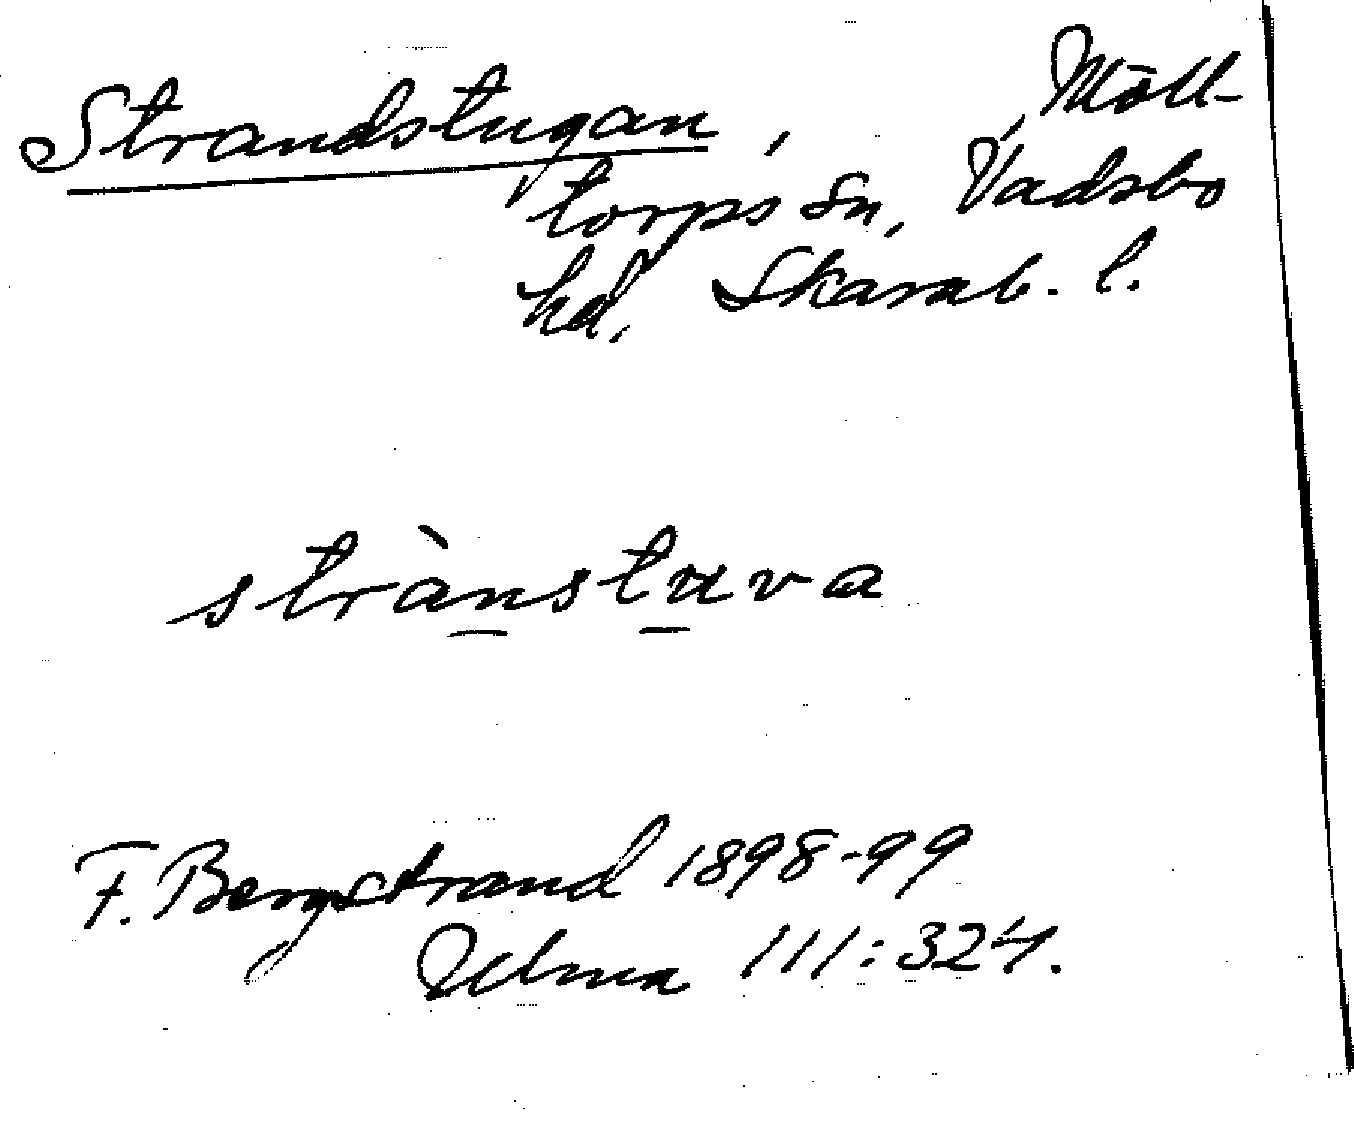 Strandstugan, Möll-
torps sn, Vadsbo
hd, Skarab. l.
strànstuva
F. Bergstrand 1898-99
Ulma 111:324.